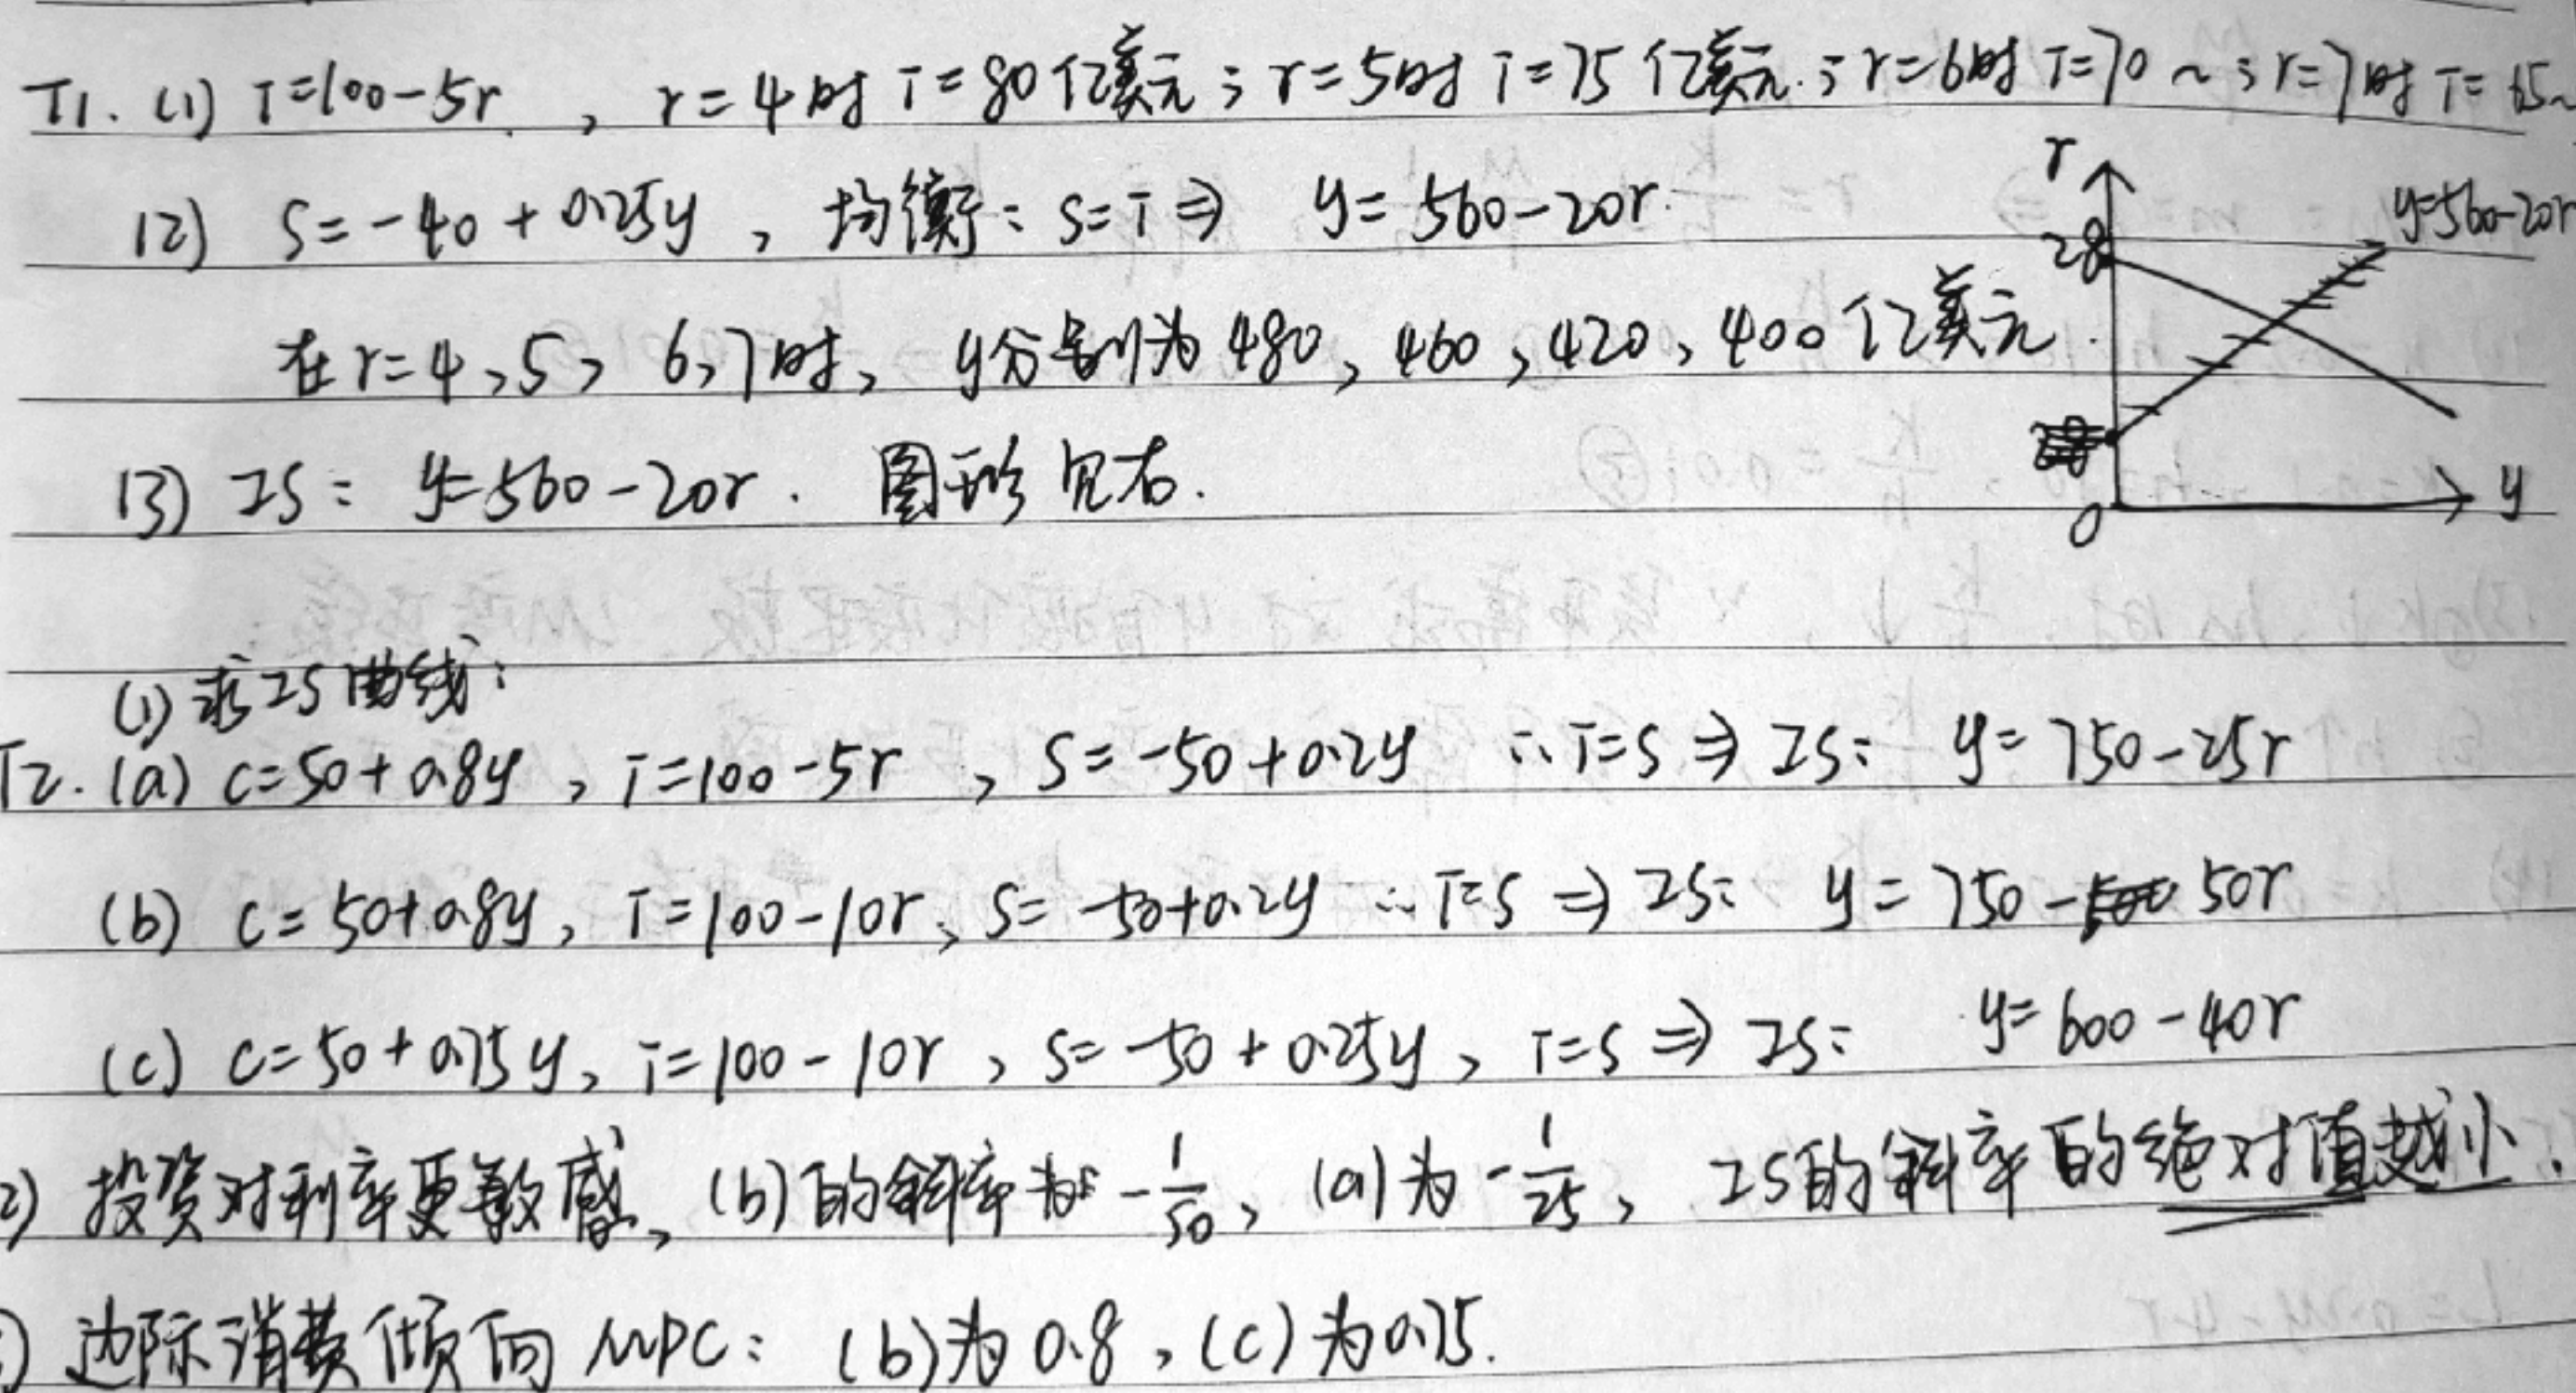 T1. (1) i=100-5r , r=4时 i=80亿美元; r=5时 i=75亿美元; r=6时 i=70 ~; r=7时 i=65~
(2) S=-40+0.25y , 均衡: S=i⇒ y=560-20r.
在r=4,5,6,7时, y分别为480, 460, 420, 400亿美元.
(3) IS: y=560-20r. 图形见右.
r
28
y=560-20r
0
y
(1) 求IS曲线:
T2. (a) c=50+0.8y , i=100-5r , S=-50+0.2y ∴i=S⇒IS: y=750-25r
(b) c=50+0.8y, i=100-10r, S=-50+0.2y ∴i=S⇒IS: y=750-50r
(c) c=50+0.75y, i=100-10r, S=-50+0.25y, i=S⇒IS: y=600-40r
2) 投资对利率更敏感, (b)的斜率为-1/50, (a)为-1/25, IS的斜率的绝对值越小.
) 边际消费倾向MPC: (b)为0.8, (c)为0.75.